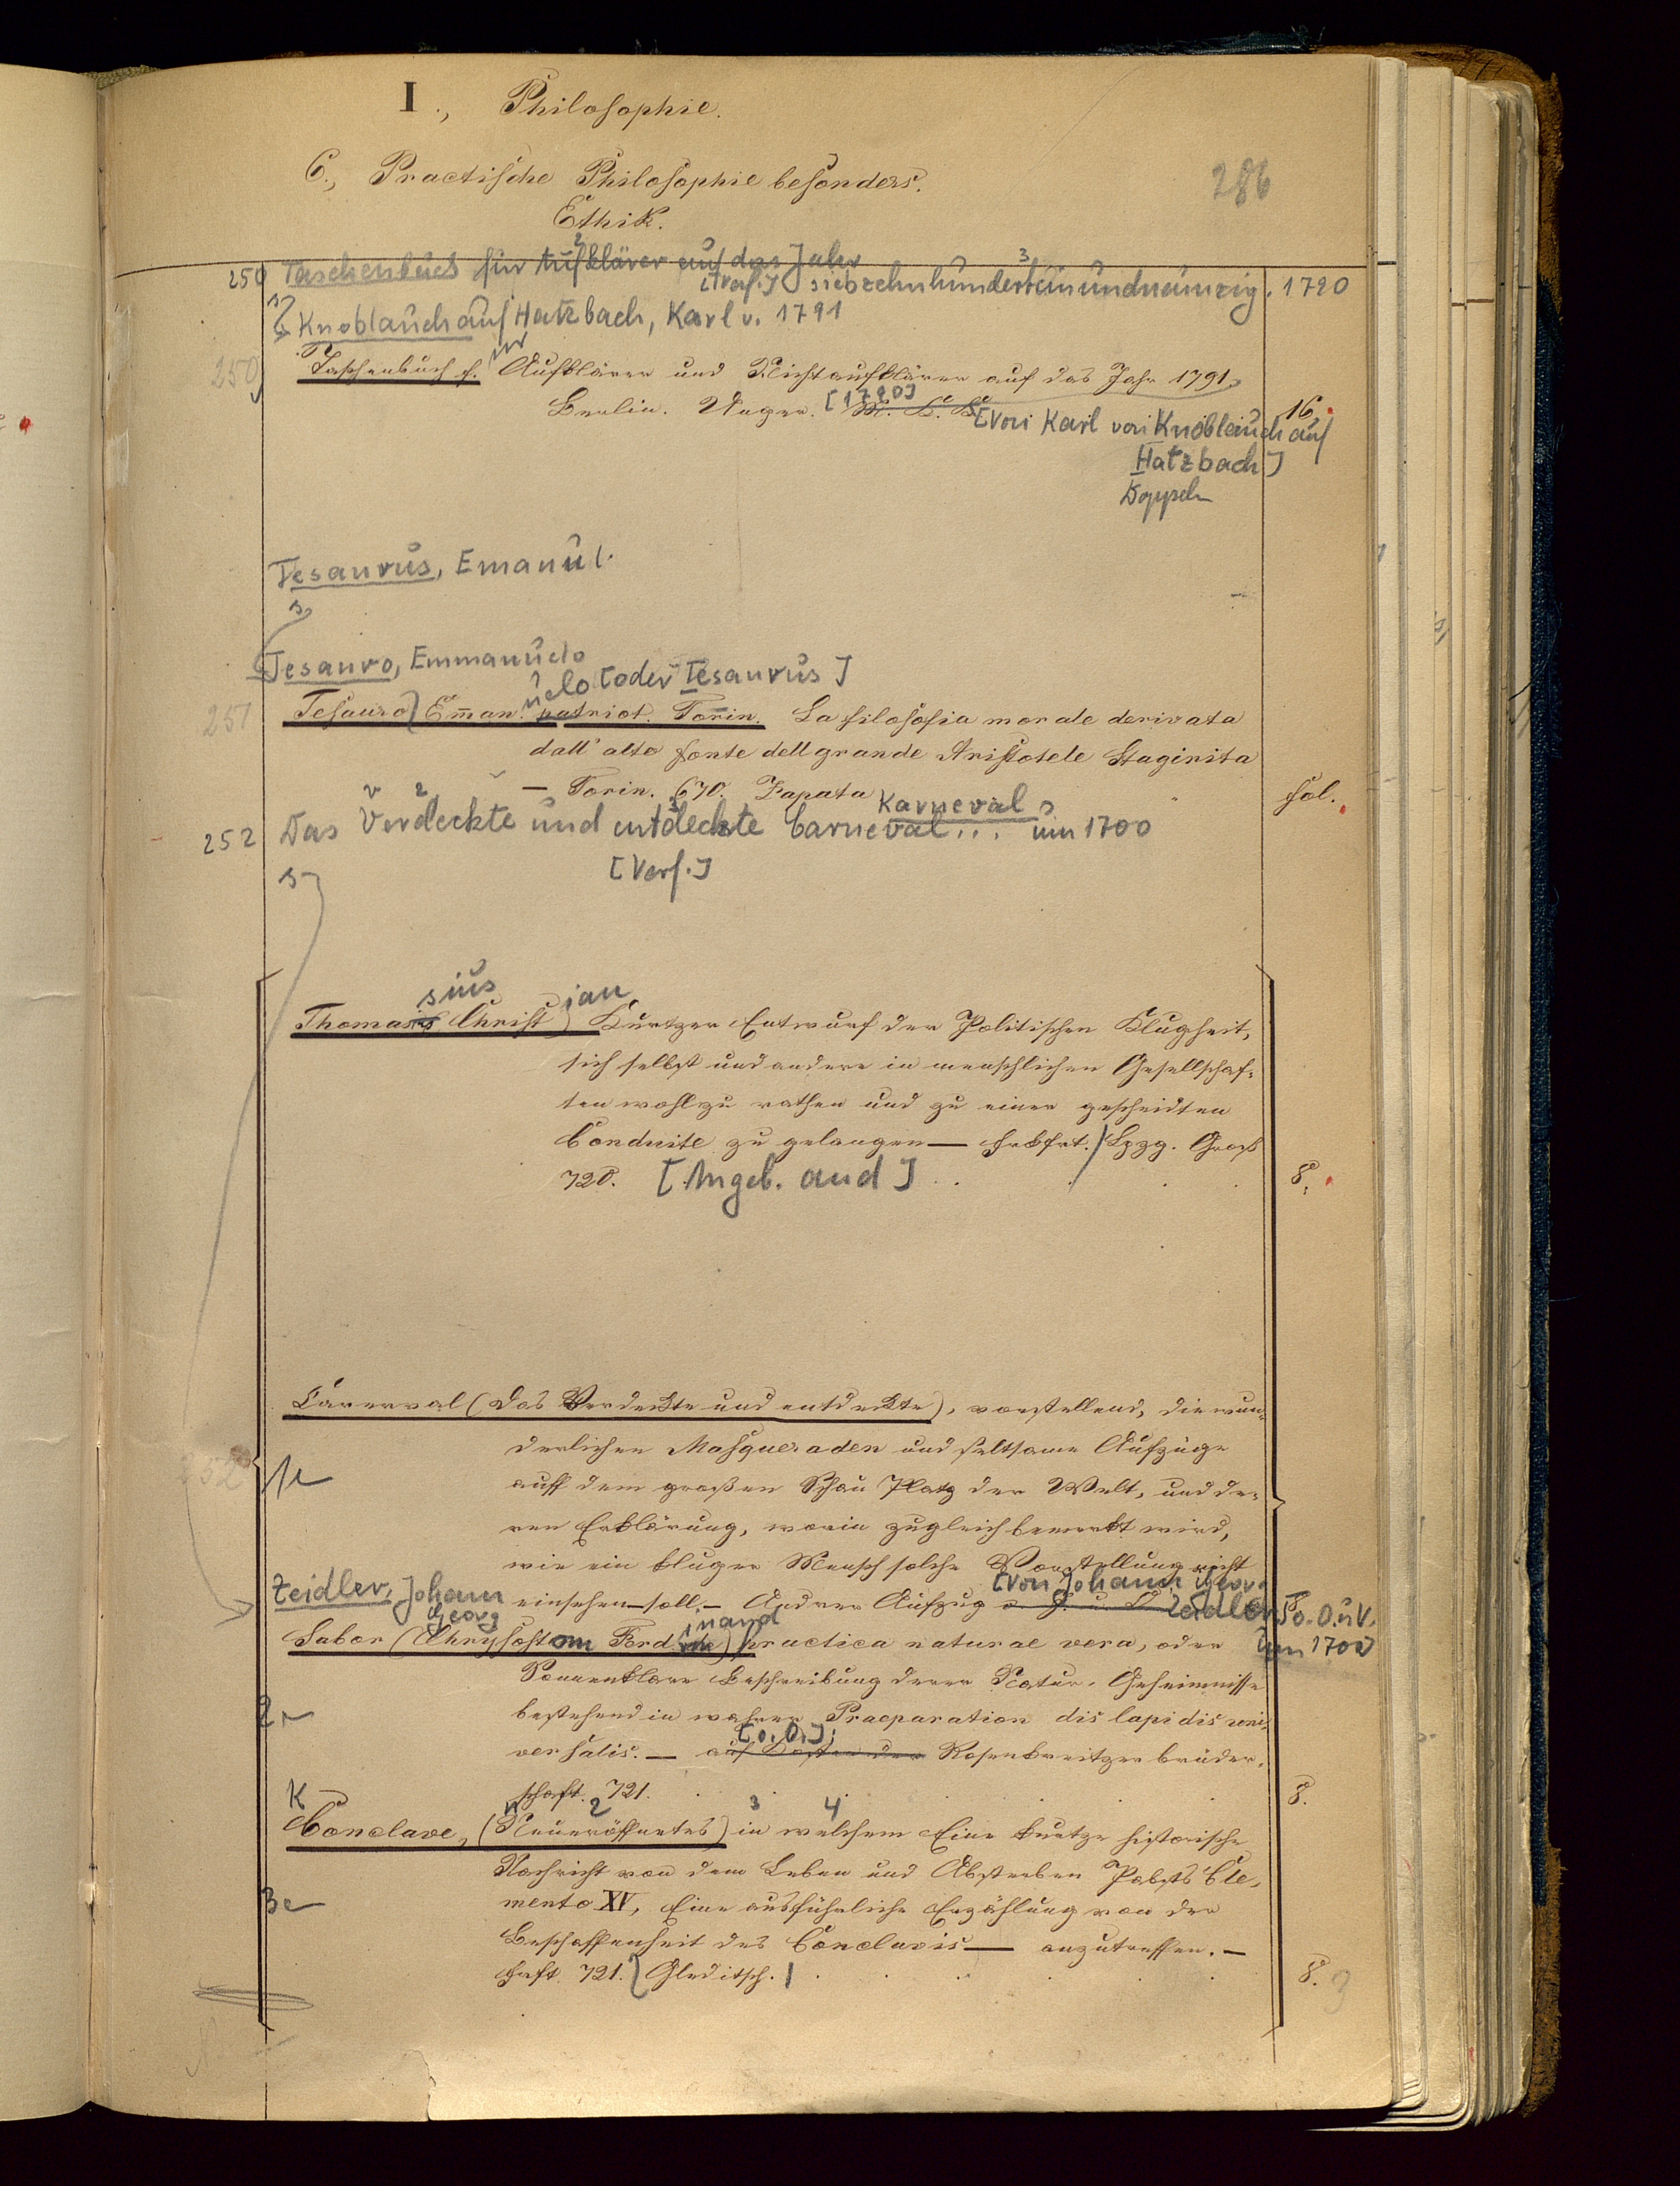 I., Philosophie.
C., Practische Philosophie besonders.
286
Ethik.
250 Taschenbuch für Aufklärer auf das Jahr
[Verf.] siebzehnhunderteinundneunzig. 1790
Knoblauch auf Hatzbach, Karl v. 1791
250 Taschenbuch f. Aufklärer und Nichtaufklärer auf das Jahr 1791.
Berlin. Unger. [1790] 16.
[Von Karl von Knoblauch auf
Hatzbach]
Tesaurus, Emanuel.
s
Tesauro, Emmanuelo
uelo [oder Tesaurus]
251 Tesauro Eman. patriot. Torin. La filosofia morale derivata
dall' alto fonte dell grande Aristotele Stagirita
— Torin. 670. Zapata fol.
Karneval s
252 Das Verdeckte und entdeckte Carneval... um 1700
[Verf.]
s
sius ian
Thomasius Christ Kurtzer Entwurf der Politischen Klugheit,
sich selbst und andere in menschlichen Gesellschaf-
ten wohl zu rathen und zu einer gescheidten
Conduite zu gelangen — Frkfrt. / Lpzg. Groß
720. [Angeb. and] 8.
Carneval (das Verdeckte und entdeckte), vorstellend, die wun-
derlichen Masqueraden und seltsame Aufzüge
252 auff dem großen Schau Platz der Welt, und de-
ren Erklärung, worin zugleich bemerkt wird,
wie ein kluger Mensch solche Vorstellung nicht
[von Johann Georg
Zeidler, Johann einsehen soll. — Andrer Aufzug Zeidler] o. O. u V.
Georg
inand
Sabor (Chrysostom Ferd.) practica naturae vera, oder um 1700
Sonnenklare Beschreibung derer Natur-Geheimnisse
2 bestehend in wahrer Praeparation dis lapidis uni-
[o. O.];
versalis. — auf Kosten der Rosenkreitzer brüder-
schaft. 721. 8.
K n 2 3 4
Conclave, (Neueröffnetes) in welchem Eine kurtze historische
Nachricht von dem Leben und Absterben Pabsts Cle-
3 mento XV, Eine ausführliche Erzählung von der
Beschaffenheit des Conclavis — anzutreffen. —
Frft. 721. Gleditsch. 8.